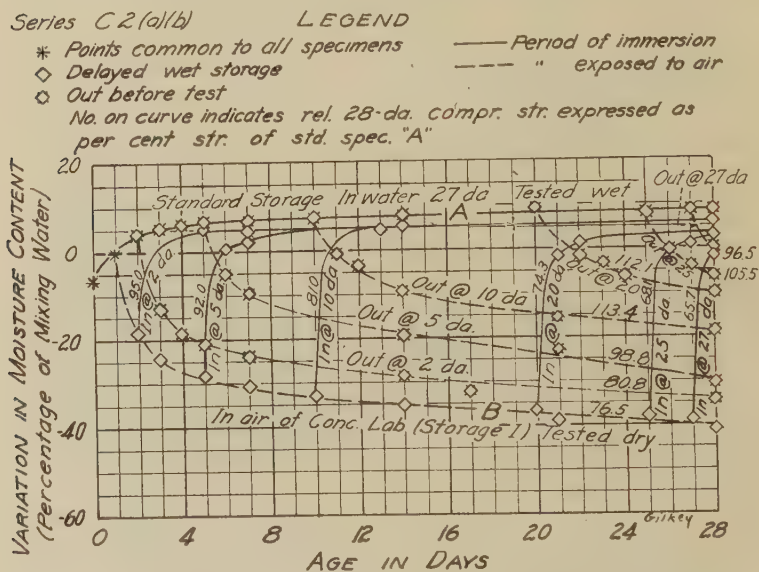 Series C 2 (a)(b) LEGEND
* Points common to all specimens
◇ Delayed wet storage
Out before test
Period of immersion
" exposed to air
No. on curve indicates rel. 28-da. compr. str. expressed as
per cent str. of std. spec. "A"
VARIATION IN MOISTURE CONTENT
(Percentage of Mixing Water)
20
0
-20
-40
-60
Standard Storage In water 27 da Tested wet
Out @ 27 da
A
95.0
In @ 2 da
92.0
In @ 5 da
81.0
In @ 10 da
Out @ 10 da
Out @ 5 da.
Out @ 2 da.
74.3
In @ 20 da
112
Out @ 20
68.1
In @ 25 da.
65.7
In @ 27 da
96.5
105.5
113.4
98.8
80.8
76.5
B
In air of Conc. Lab (Storage I) Tested dry
Gilkey
0 4 8 12 16 20 24 28
AGE IN DAYS